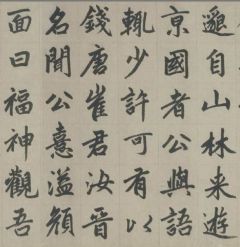 邈自山林来遊
京國者公與語
輒少許可有以
錢唐崔君汝晋
名聞公憙溢顔
面曰福神觀吾